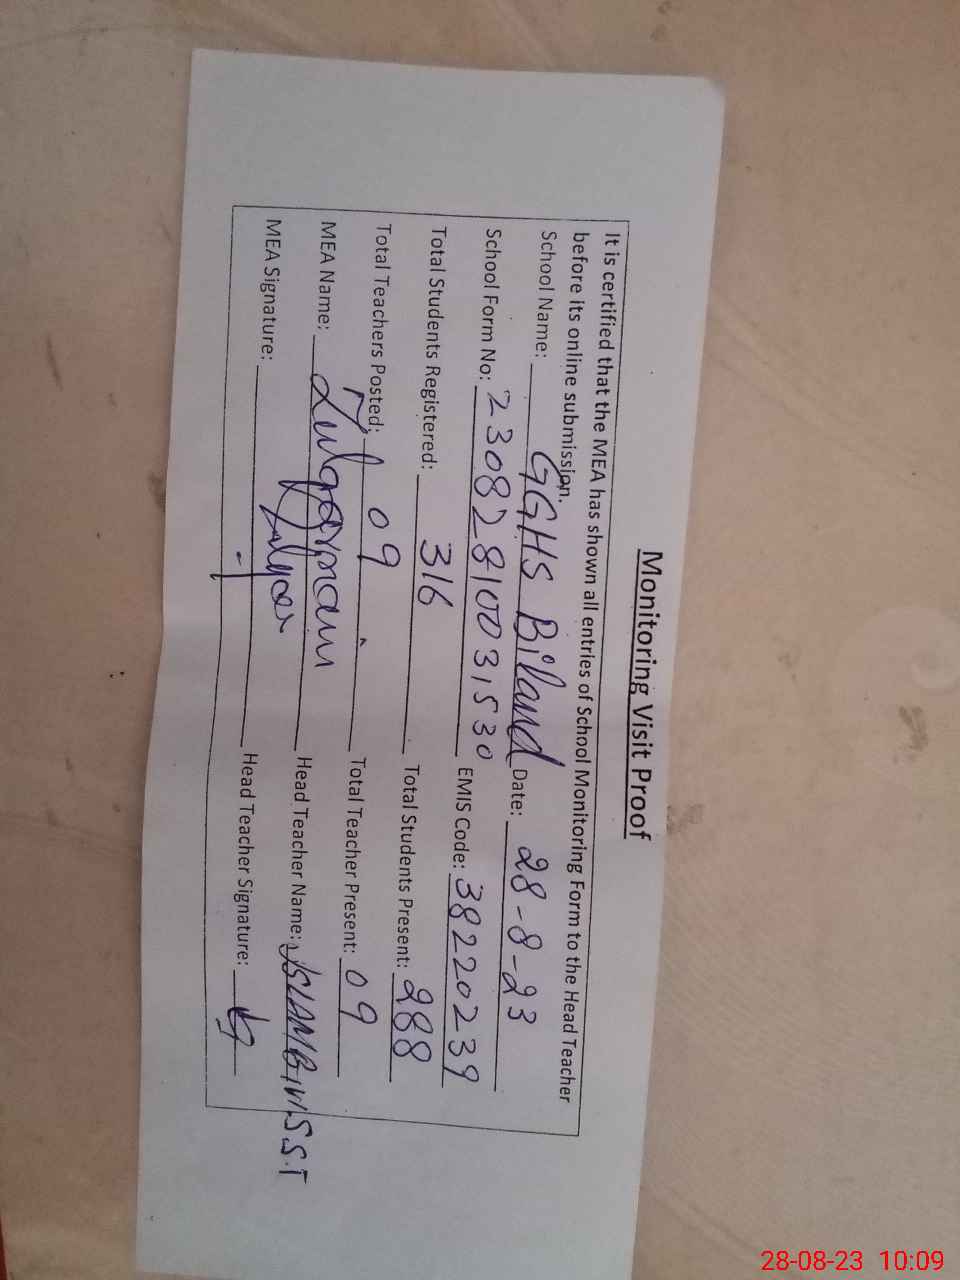 Monitoring Visit Proof
It is certified that the MEA has shown all entries of School Monitoring Form to the Head Teacher
before its online submission.
School Name: GGHS Biland Date: 28-8-23
School Form No: 2308281003,530 EMIS Code: 38220239
Total Students Registered: 316 Total Students Present: 288
Total Teachers Posted: 09 Total Teacher Present: 09
MEA Name: Zulqarnain Head Teacher Name: ISLAM BIVI S.S.T
MEA Signature: Head Teacher Signature:
28-08-23 10:09